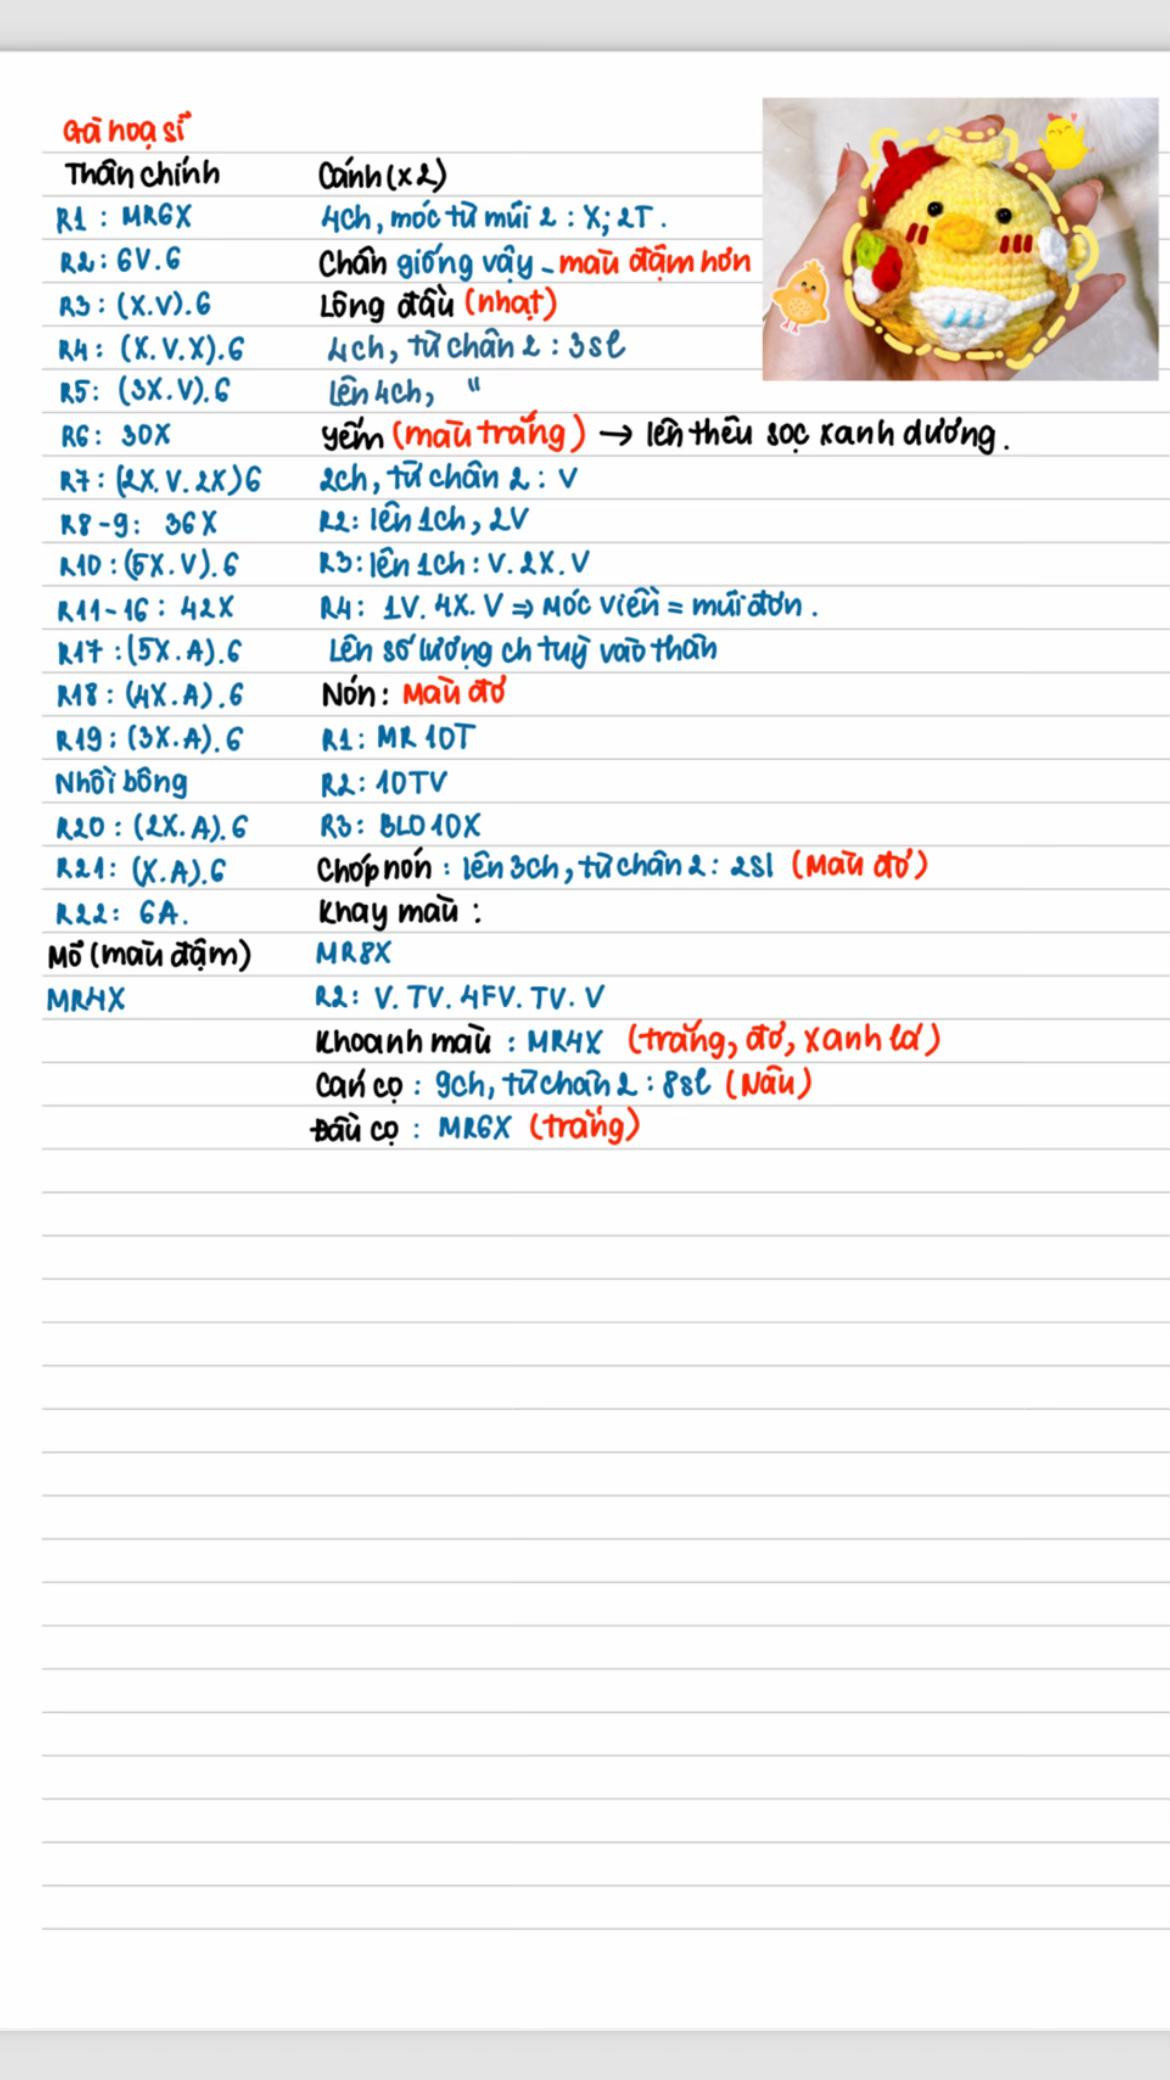 Gà hoạ sĩ
Thân chính
R1 : MR6X
R2: 6V.6
R3 : (X.V).6
R4: (X.V.X).6
R5: (3X.V).6
R6: 30X
R7: (2X.V.2X)6
R8-9: 36X
R10 : (5X.V).6
R11-16 : 42X
R17 : (5X.A).6
R18 : (4X.A).6
R19 : (3X.A).6
Nhồi bông
R20 : (2X.A).6
R21: (X.A).6
R22: 6A.
Mỏ (màu đậm)
MR4X
Cánh (x2)
4ch, móc từ mũi 2 : X; 2T.
Chân giống vậy - màu đậm hơn
Lông đầu (nhạt)
4ch, từ chân 2 : 3sl
Lên 4ch, "
Yếm (màu trắng) → lên thêu sọc xanh dương.
2ch, từ chân 2 : V
R2: lên 1ch, 2V
R3: lên 1ch : V.2X.V
R4: 1V.4X.V ⇒ Móc viền = mũi đơn.
Lên số lượng ch tuỳ vào thân
Nón: Màu đỏ
R1: MR 10T
R2: 10TV
R3: BLO 10X
Chóp nón : lên 3ch, từ chân 2: 2sl (Màu đỏ)
Khay màu :
MR8X
R2: V.TV.4FV.TV.V
Khoanh màu : MR4X (trắng, đỏ, xanh lá)
Cán cọ : 9ch, từ chân 2 : 8sl (Nâu)
Đầu cọ : MR6X (trắng)